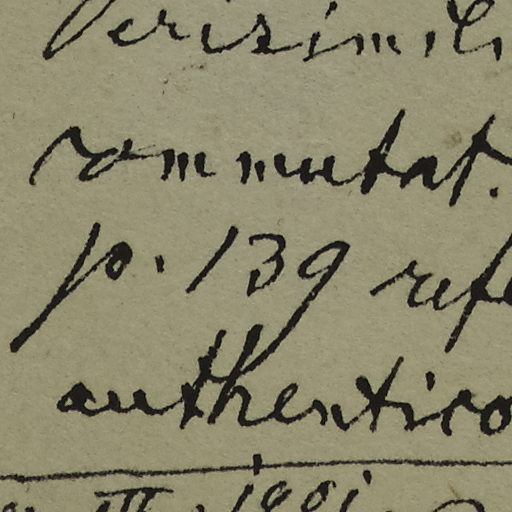 Verisimili
commutat.
p. 139 refe
authentico
III. 1901